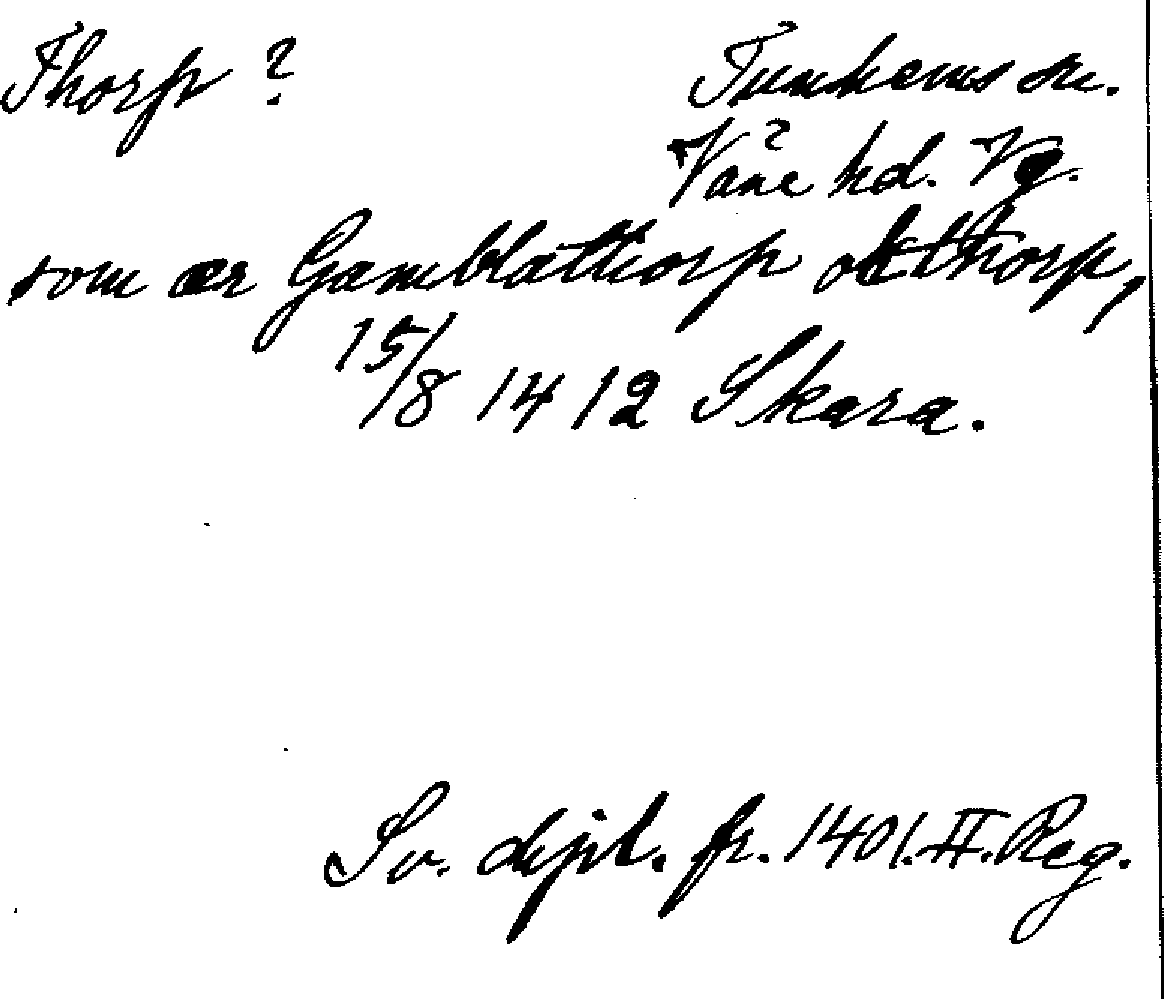 Thorp ? Tunhems sn.
Väne hd. Vg.
som ær Gamblathorp ok thorp,
15/8 1412 Skara.
Sv. dipl. fr. 1401. II. Reg.